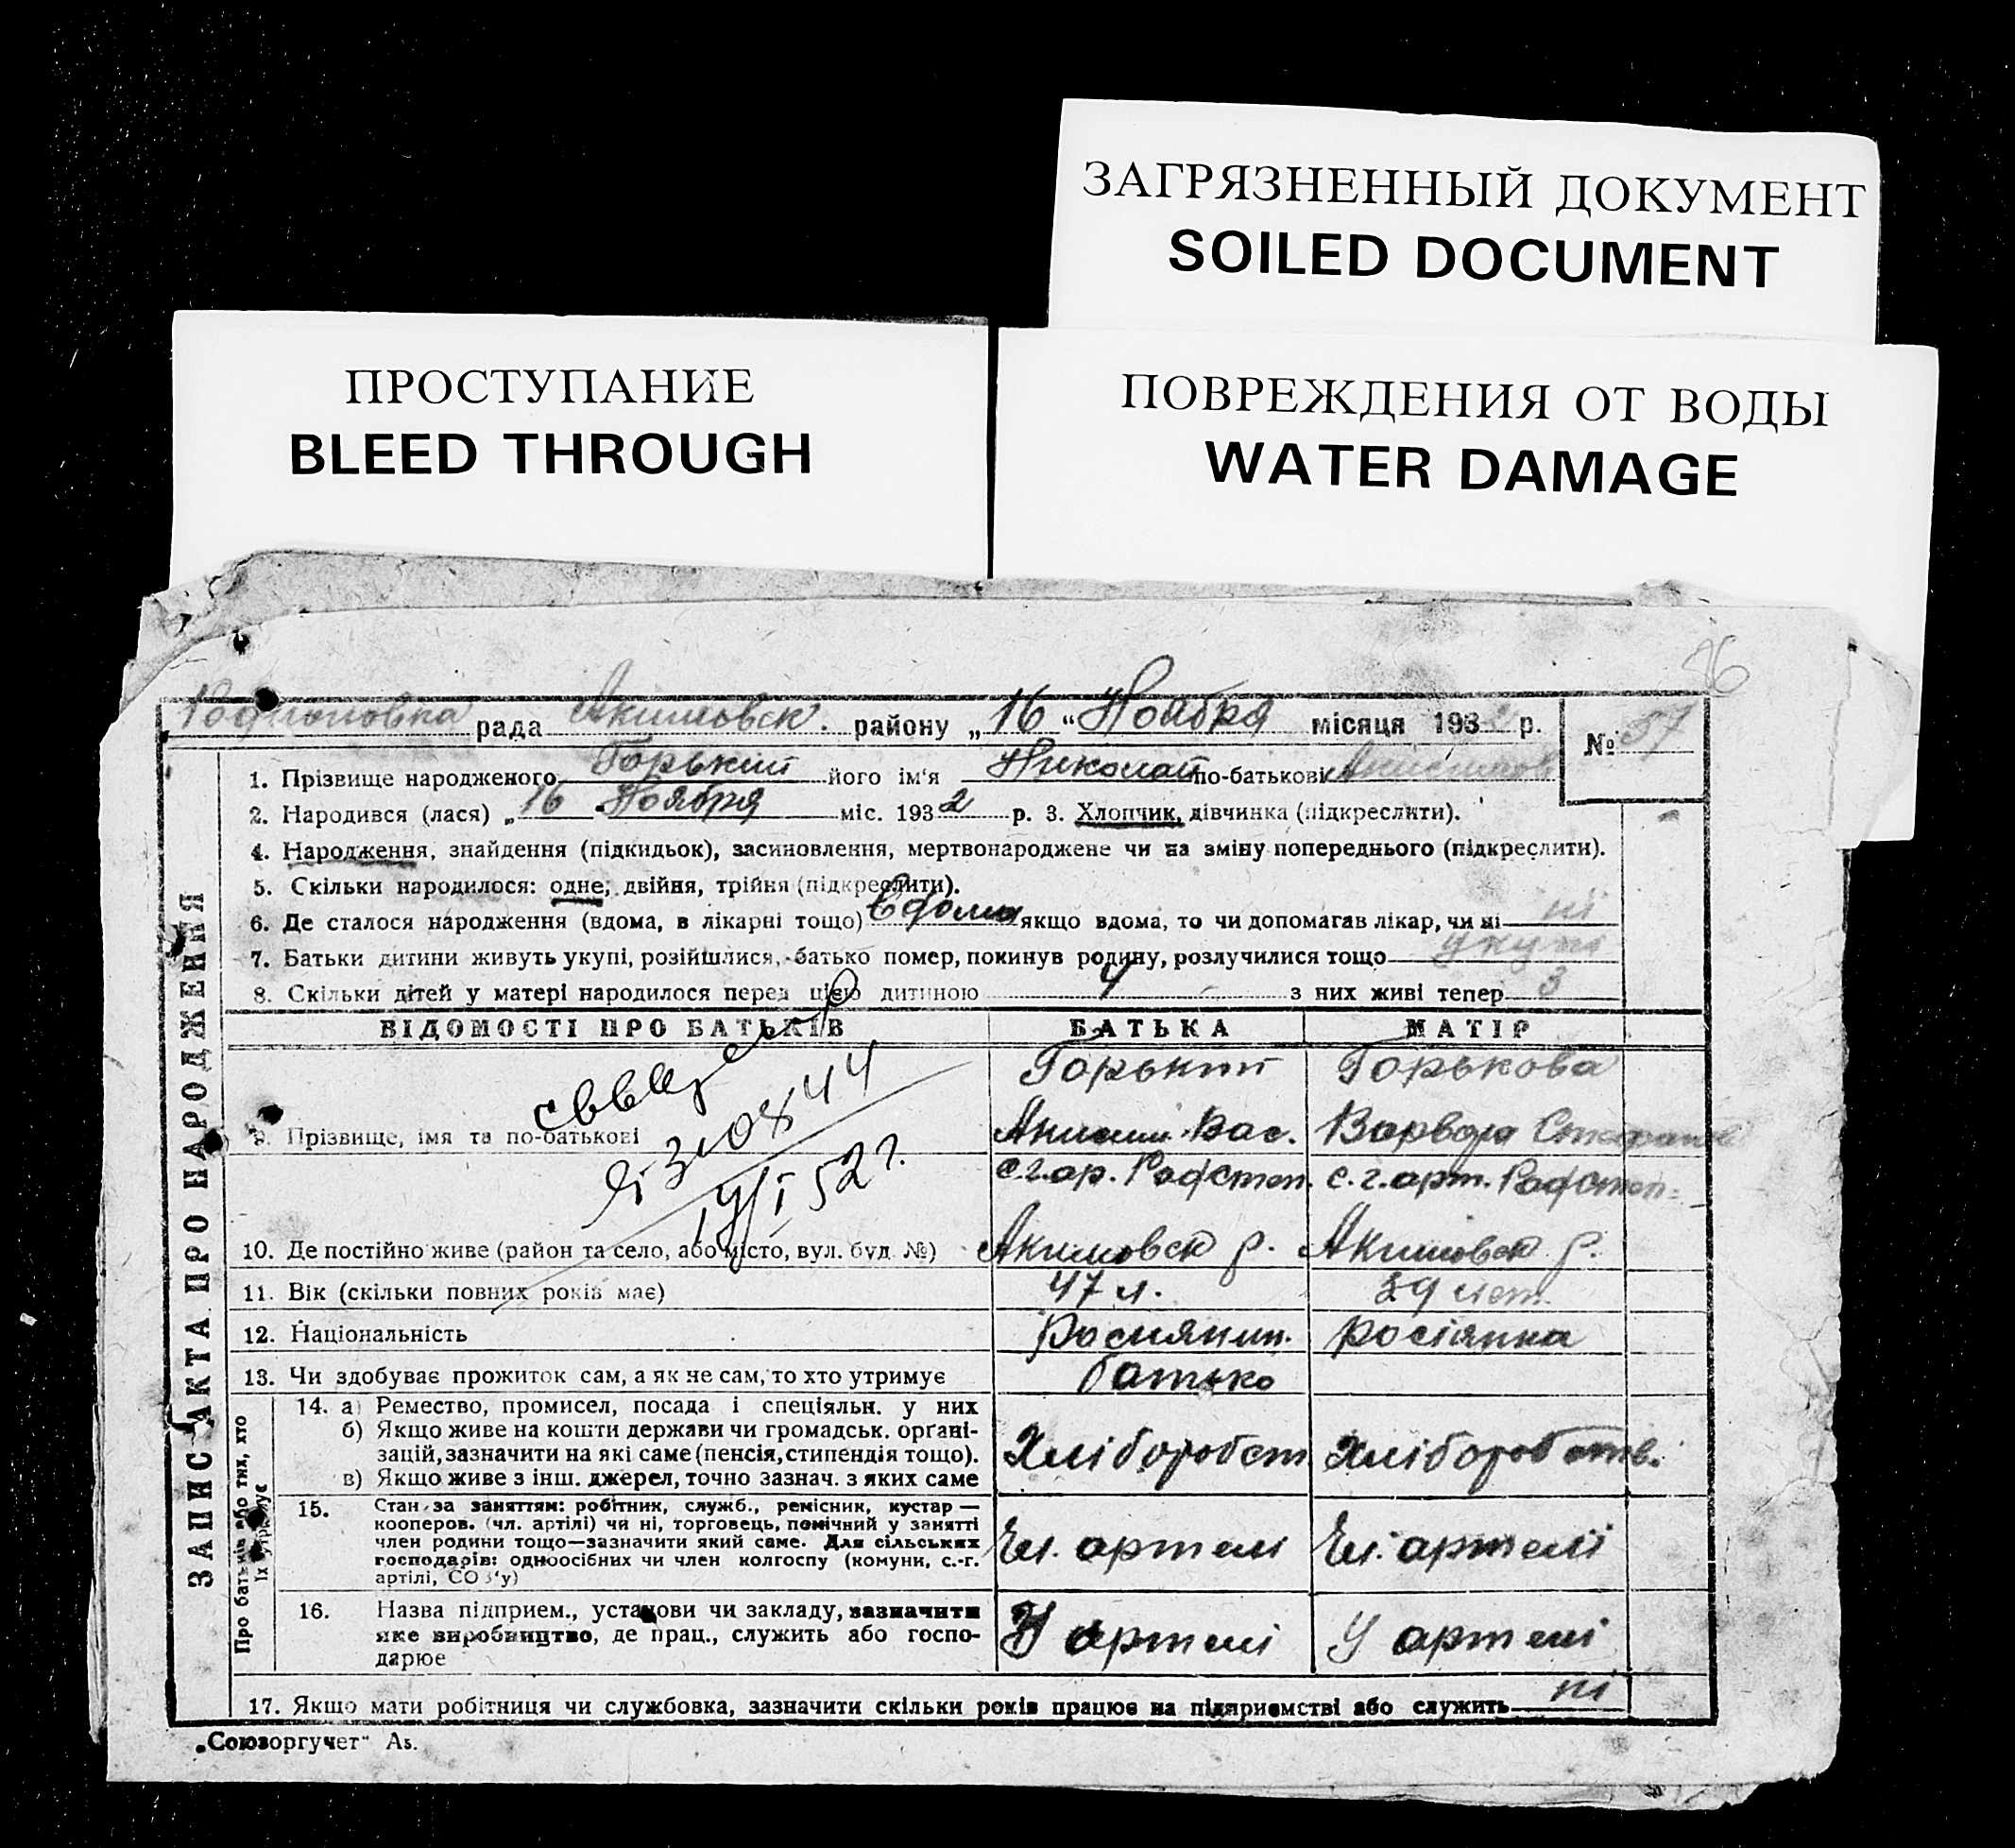 ЗАГРЯЗНЕННЫЙ ДОКУМЕНТ
SOILED DOCUMENT
ПРОСТУПАНИЕ
BLEED THROUGH
ПОВРЕЖДЕНИЯ ОТ ВОДЫ
WATER DAMAGE
Родионовка рада Акимовск. району „16“ Ноября місяця 1932 р. № 57
1. Прізвище народженого Горький його ім'я Николай по-батькові
2. Народився (лася) „16 Ноября міс. 1932 р. 3. Хлопчик, дівчинка (підкреслити).
4. Народження, знайдення (підкидьок), засиновлення, мертвонароджене чи на зміну попереднього (підкреслити).
5. Скільки народилося: одне, двійня, трійня (підкреслити).
6. Де сталося народження (вдома, в лікарні тощо) Вдома якщо вдома, то чи допомагав лікар, чи ні ні
7. Батьки дитини живуть укупі, розійшлися, батько помер, покинув родину, розлучилися тощо укупі
8. Скільки дітей у матері народилося перед цією дитиною 4 з них живі тепер 3
ЗАПИС АКТА ПРО НАРОДЖЕННЯ
ВІДОМОСТІ ПРО БАТЬКІВ БАТЬКА МАТІР
Горький Горькова
9. Прізвище, імя та по-батькові Анисим Вас. Варвара
с.г.ар. Радстеп. с.г.арт. Радстеп.
10. Де постійно живе (район та село, або місто, вул. буд. №) Акимовск р. Акимовск р.
11. Вік (скільки повних років має) 47 л. 39 лет.
12. Національність Росиянин. росіянка
13. Чи здобуває прожиток сам, а як не сам, то хто утримує батько
Про батьків або тих, хто їх утримує
14. а) Ремество, промисел, посада і спеціяльн. у них
б) Якщо живе на кошти держави чи громадськ. орґані-
зацій, зазначити на які саме (пенсія, стипендія тощо).
в) Якщо живе з інш. джерел, точно зазнач. з яких саме
Хліборобст Хліборобств.
15. Стан за заняттям: робітник, служб., ремісник, кустар —
кооперов. (чл. артілі) чи ні, торговець, помічний у занятті
член родини тощо—зазначити який саме. Для сільських
господарів: одноосібних чи член колгоспу (комуни, с.-г.
артілі, СОЗ'у)
Чл. артелі Чл. артелі
16. Назва підприєм., установи чи закладу, зазначити
яке виробництво, де прац., служить або госпо-
дарює
У артелі У артелі
17. Якщо мати робітниця чи службовка, зазначити скільки років працює на підприємстві або служить ні
„Союзоргучет“ Аз.